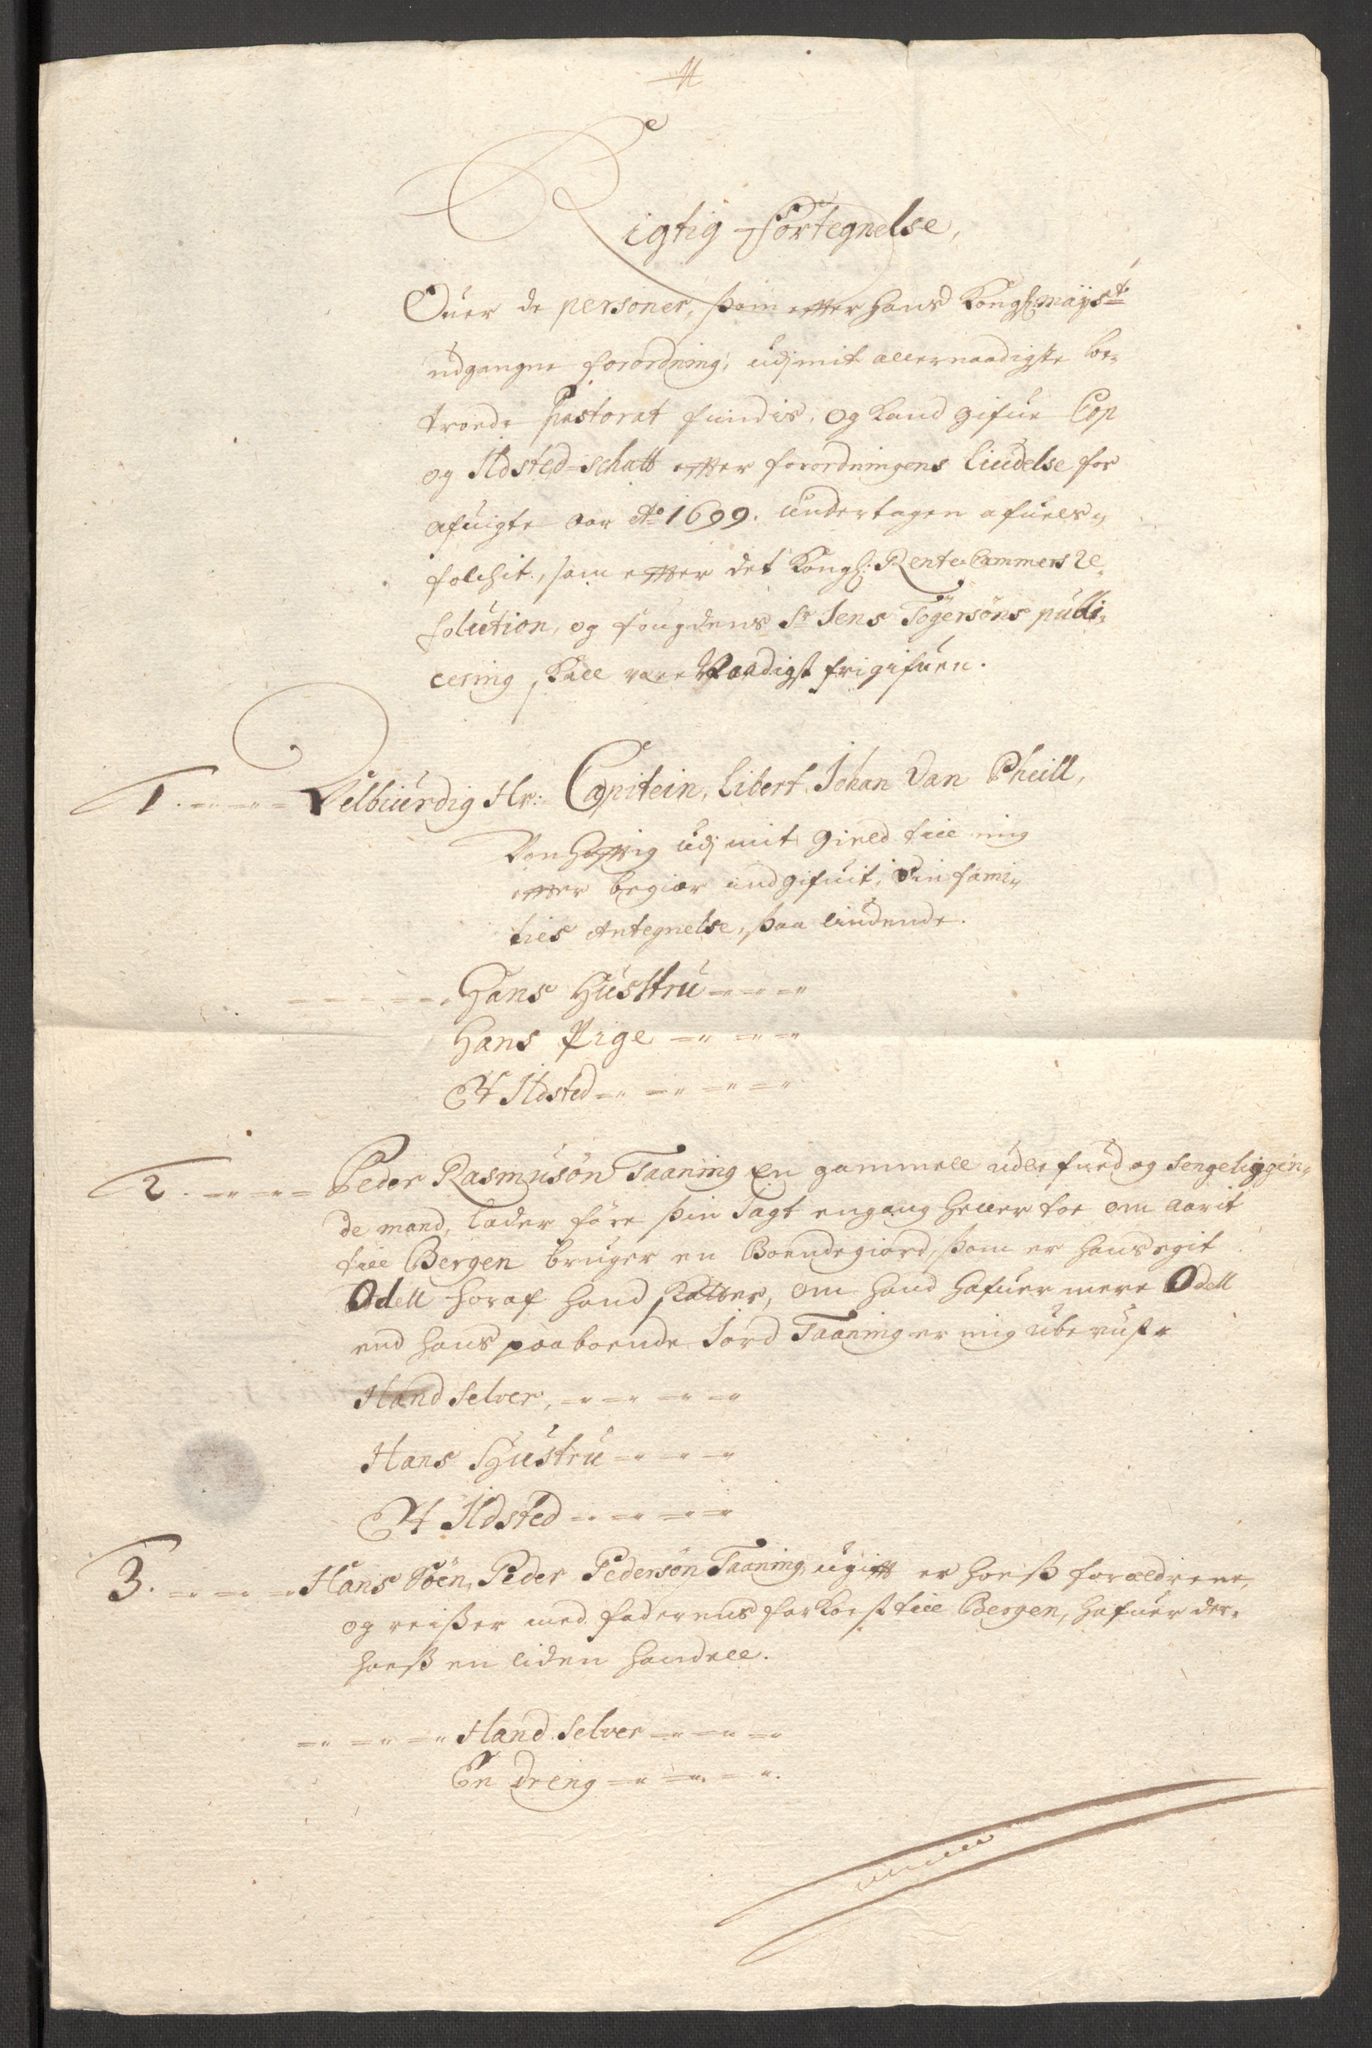 Rigtig Fortegnelse,
Ofuer de personer, som effter hans Kongl: mayst:
udgangne forordning, udj mit allernaadigste be-
troede Pastorat findis, og kand gifue Cop
og Ildsted-schatt effter forordningens liudelse for
afuigte aar Ao 1699. undertagen afuels-
folchit, som effter det Kongl: Rente Cammers Re-
solution, og fougdens Sr Jens Togersøns publi-
cering skall vere Naadigst frigifuen.
1. Velbiurdig Hr: Capitein, Libert Johan Van Pheill,
udj mit gield till mig
effter begiær indgifuit, Sin fami-
lies Antegnelse, saa liudende.
Hans Hustru
Hans Pige
Et Ildsted
2. Peder Rasmusøn Taaning en gammell udlefued og sengeliggin-
de mand, lader føre sin Jagt engang heller toe om aarit
till Bergen bruger en Bondegiord, som er hans egit
Odell horaf hand skatter, om hand hafuer mere Odell
end hans paaboende Jord Taaning er mig uberust
Hand Selver,
Hans Hustru
Et Ildsted
3. Hans Søn, Peder Pedersøn Taaning, ugifft er hoess forældrene,
og reisser med faderens farkost till Bergen, hafuer der-
hoess en liden handell.
Hand Selver
En dreng